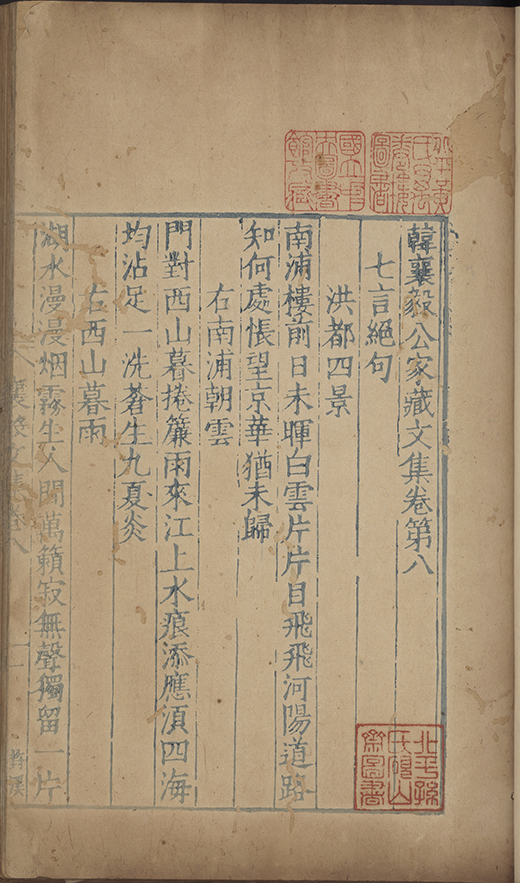 韓襄毅公家藏文集卷第八
七言絕句
洪都四景
南浦樓前日未暉白雲片片目飛飛河陽道路
知何處悵望京華猶未歸
右南浦朝雲
門對西山暮捲簾雨來江上水痕添應湏四海
均沾足一洗蒼生九夏炎
右西山暮雨
湖水漫漫烟霧生人閒萬籟寂無聲獨留一片
襄毅文集卷八
北平孫氏硯山齋圖書